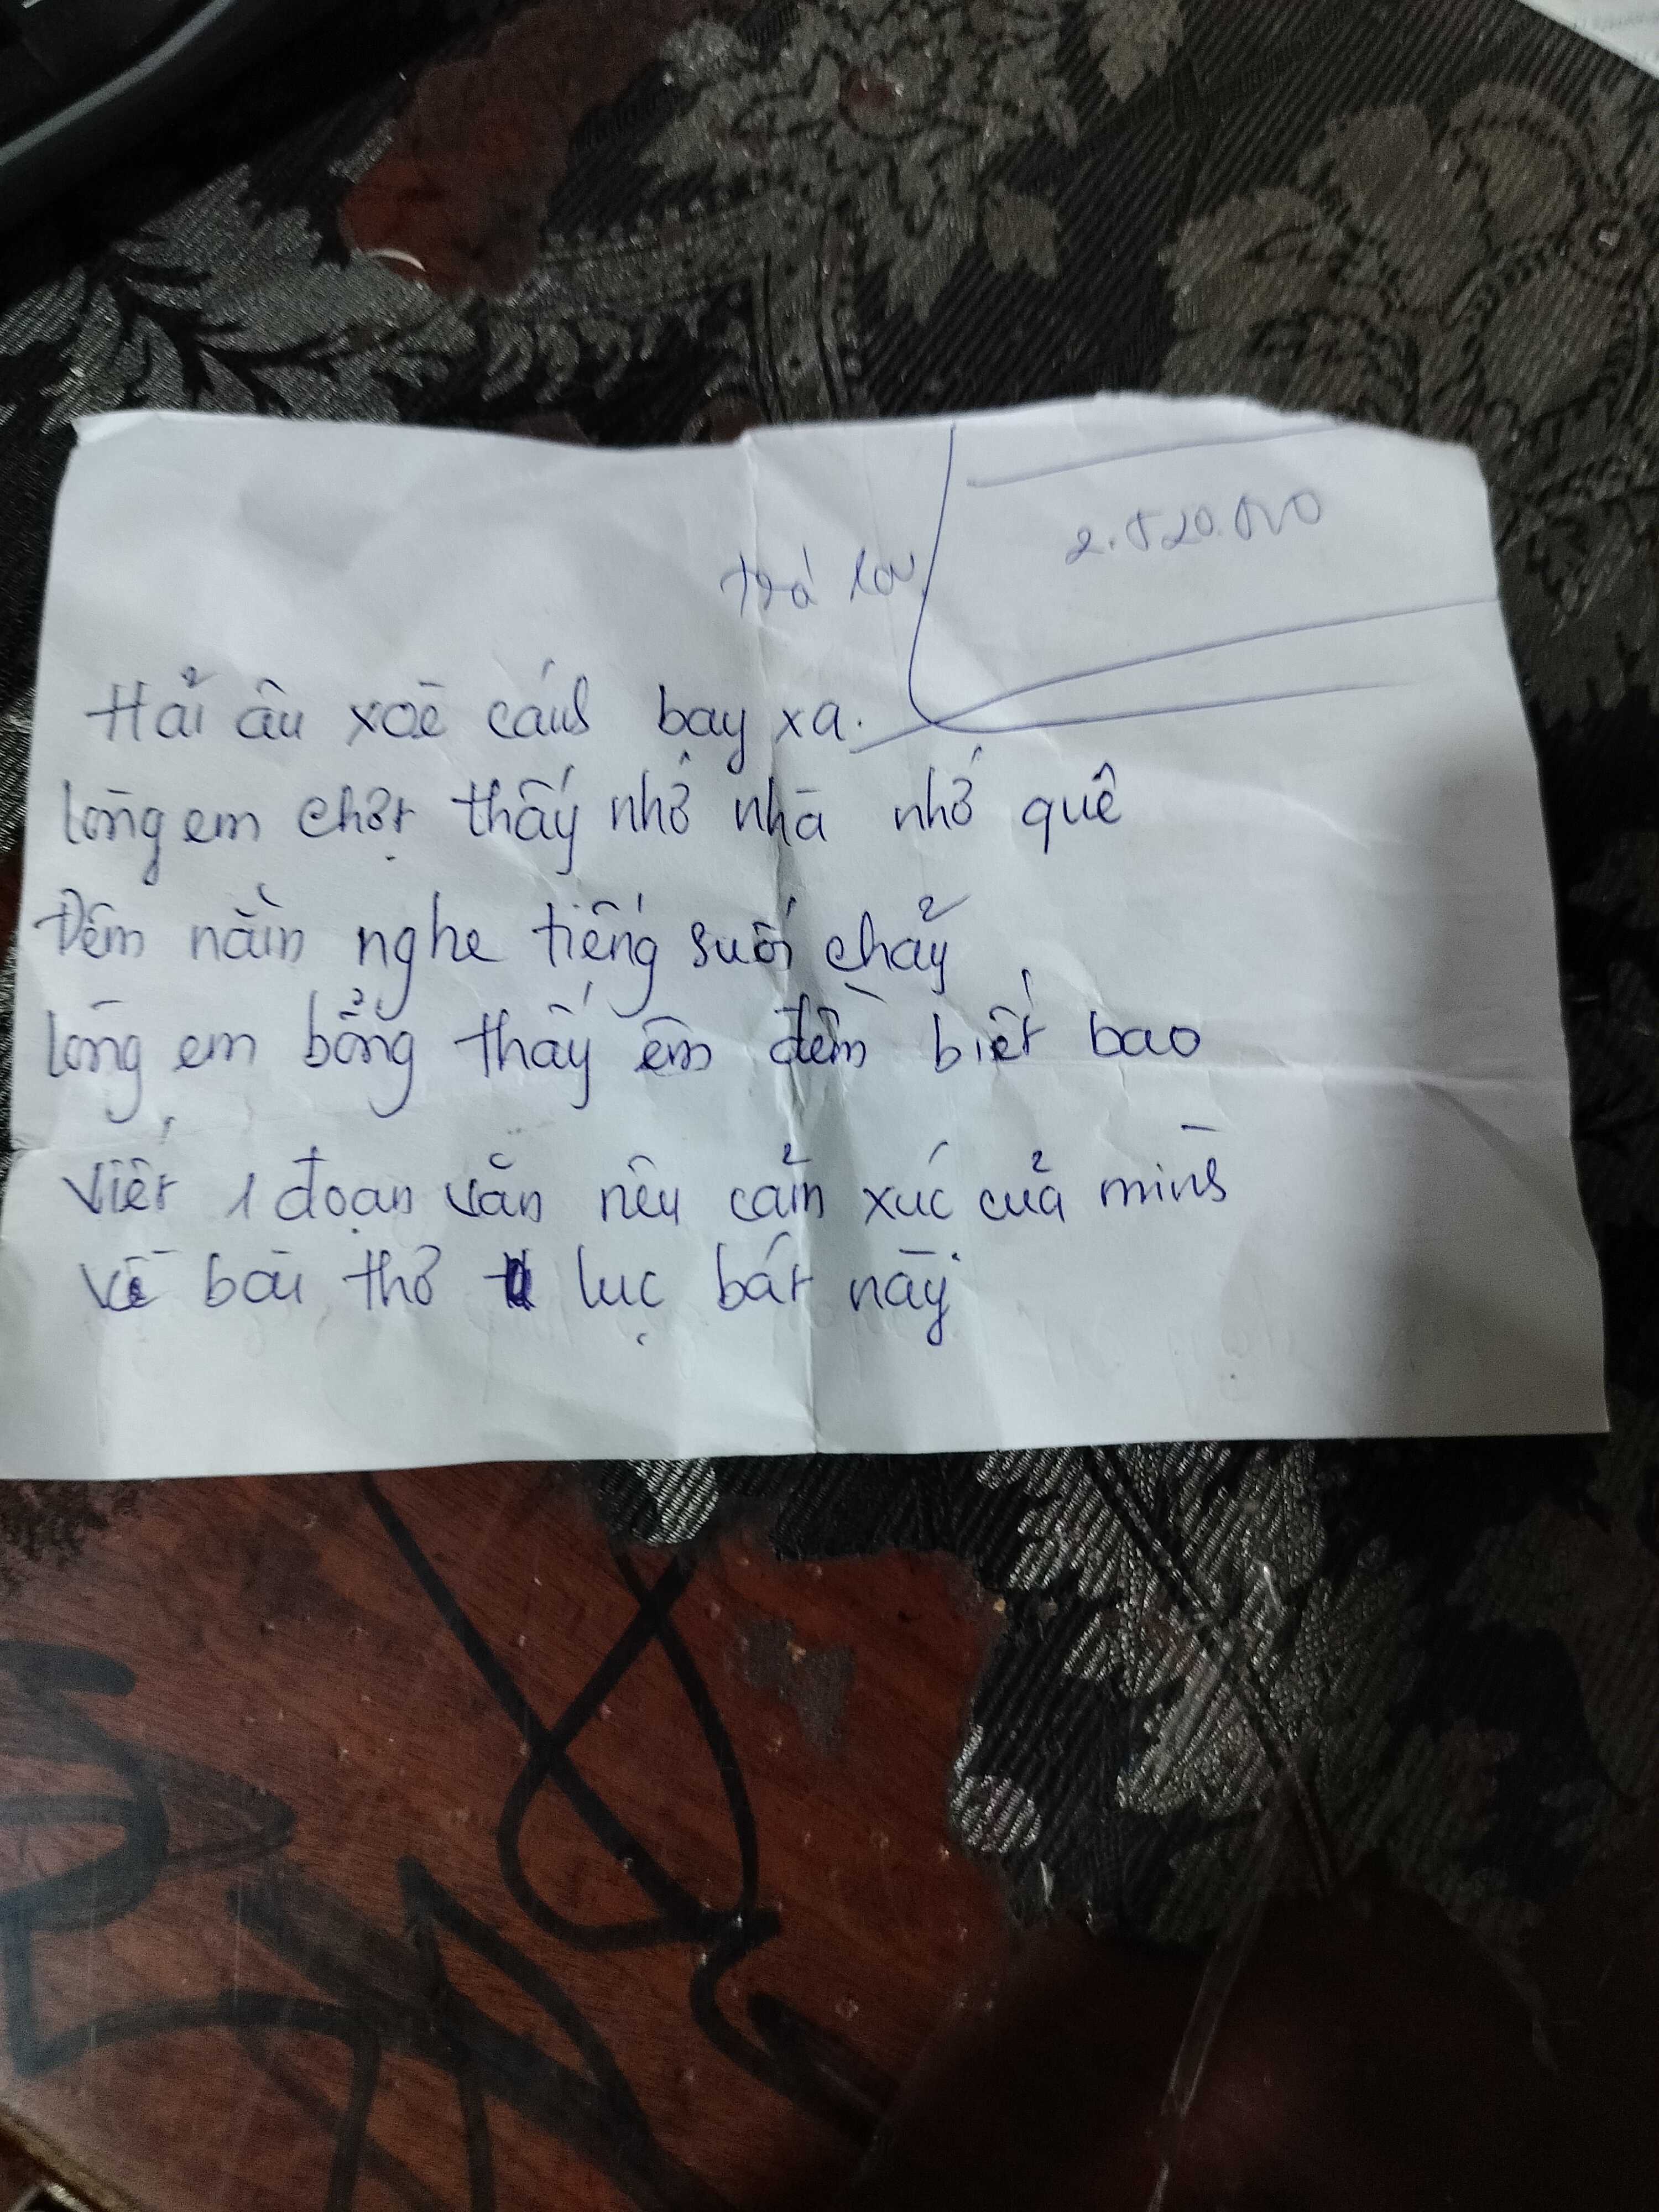 2.520.000
trả lời
Hải âu xoè cánh bay xa.
lòng em chợt thấy nhớ nhà nhớ quê
Đêm nằm nghe tiếng suối chảy
lòng em bỗng thấy êm đềm biết bao
Viết 1 đoạn văn nêu cảm xúc của mình
về bài thơ lục bát này